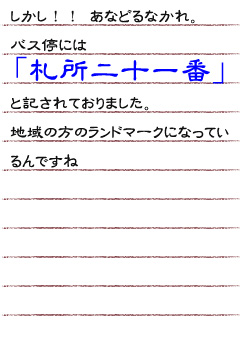 しかし！！ あなどるなかれ。
バス停には
「札所二十一番」
と記されておりました。
地域の方のランドマークになってい
るんですね